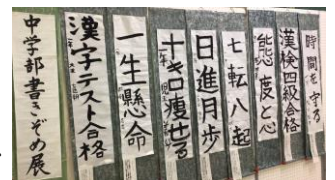 中学部書きぞめ展
漢字テスト合格
一生懸命
十キロ痩せる
日進月歩
七転八起
態度と心
漢検四級合格
時間を守る